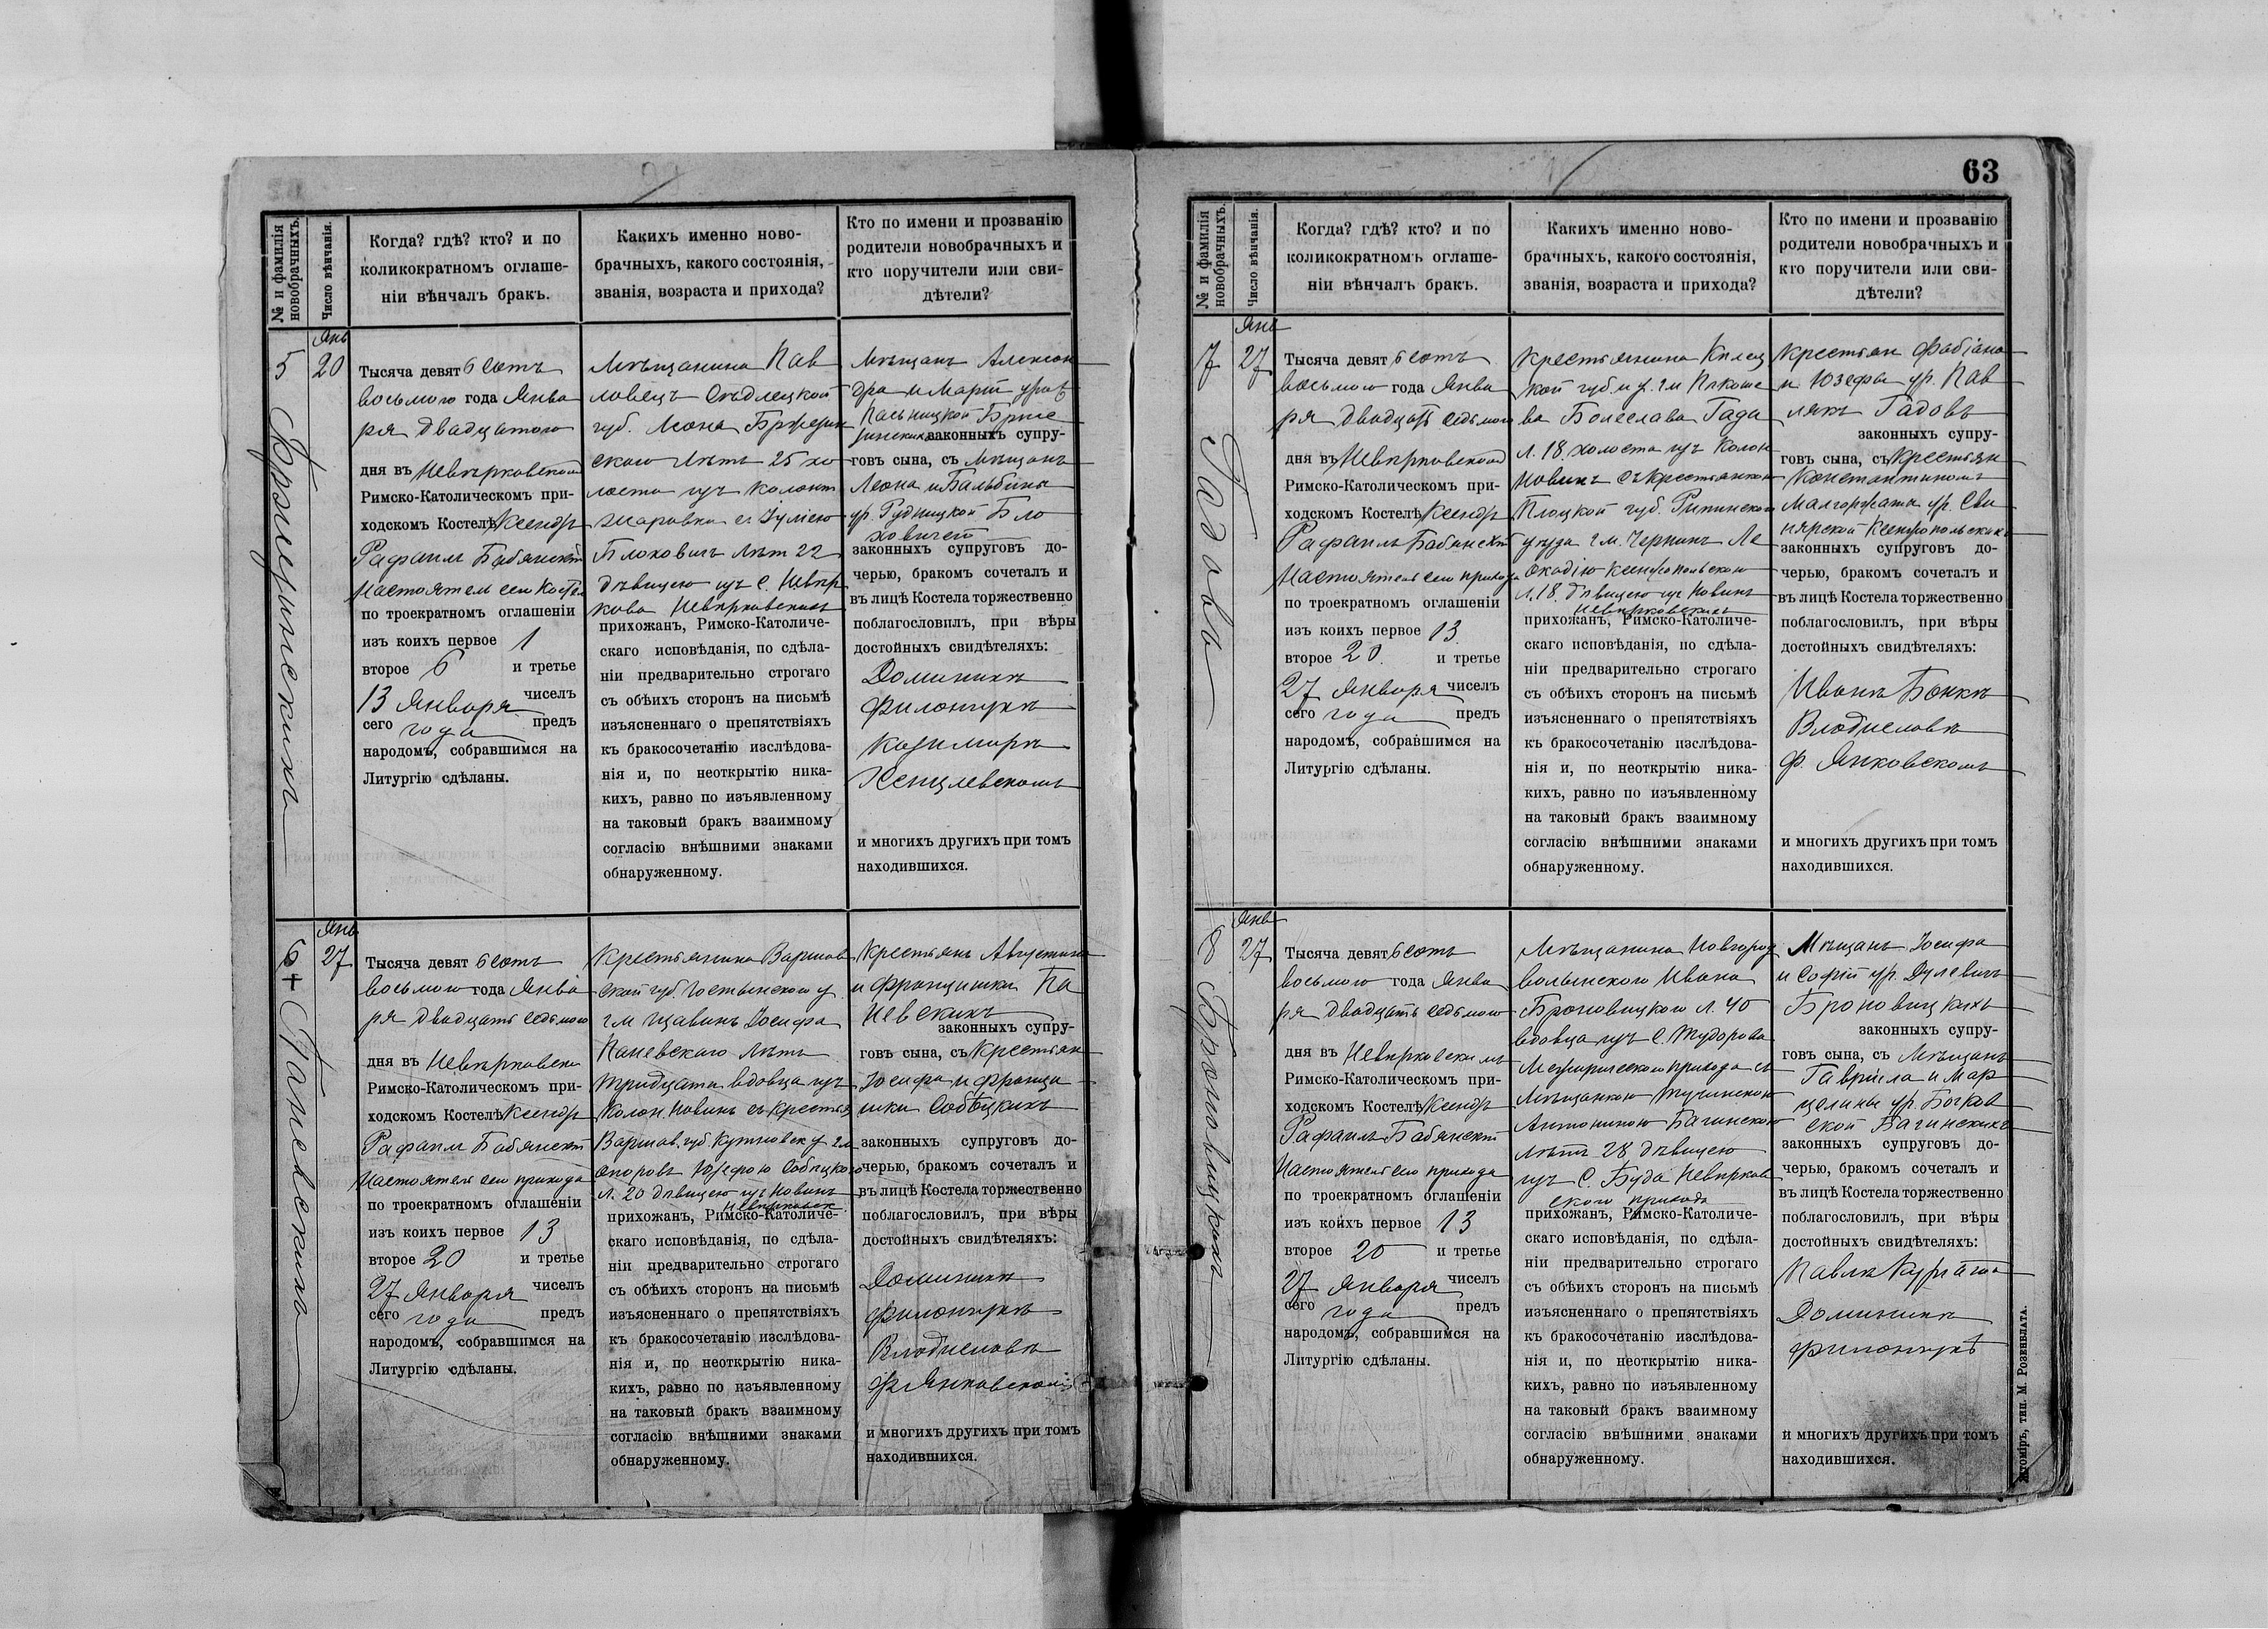 № и фамилія новобрачныхъ.
Число вѣнчанія.
Когда? гдѣ? кто? и по
коликократномъ оглаше-
ніи вѣнчалъ бракъ.
Какихъ именно ново-
брачныхъ, какого состоянія,
званія, возраста и прихода?
Кто по имени и прозванію
родители новобрачныхъ и
кто поручители или сви-
дѣтели?
5
Янв
20
Тысяча девятьсотъ
восьмого года Янва
ря двадцатого
дня въ Невѣрковскомъ
Римско-Католическомъ при-
ходскомъ Костелѣ Ксендзъ
Рафаилъ Бабянскій
Настоятель сего Костела
по троекратномъ оглашеніи
изъ коихъ первое 1
второе 6 и третье
13 Января чиселъ
сего года предъ
народомъ, собравшимся на
Литургію сдѣланы.
Мѣщанина Пав
ловецъ Сѣдлецкой
губ. Леона Бржезин
скаго лѣтъ 25 хо
лоста изъ Колоніи
съ Юліею
Блоховичъ лѣт 22
дѣвицею изъ с. Невѣр
кова Невѣрковскихъ
прихожанъ, Римско-Католиче-
скаго исповѣданія, по сдѣла-
ніи предварительно строгаго
съ обѣихъ сторонъ на письмѣ
изъясненнаго о препятствіяхъ
къ бракосочетанію изслѣдова-
нія и, по неоткрытію ника-
кихъ, равно по изъявленному
на таковый бракъ взаимному
согласію внѣшними знаками
обнаруженному.
Мѣщанъ Алексан
дра и Маріи урож
законныхъ супру-
говъ сына, съ Мѣщанъ
Леона и Бальбины
ур. Рудницкой Бло
ховичей
законныхъ супруговъ до-
черью, бракомъ сочеталъ и
въ лицѣ Костела торжественно
поблагословилъ, при вѣры
достойныхъ свидѣтеляхъ:
Доминикъ
Филончукъ
Казимиръ
и многихъ другихъ при томъ
находившихся.
6
Паневскихъ
Янв
27
Тысяча девятьсотъ
восьмого года Янва
ря двадцать седьмого
дня въ Невѣрковско
Римско-Католическомъ при-
ходскомъ Костелѣ Ксендзъ
Рафаилъ Бабянскій
Настоятель сего прихода
по троекратномъ оглашеніи
изъ коихъ первое 13
второе 20 и третье
27 Января чиселъ
сего года предъ
народомъ, собравшимся на
Литургію сдѣланы.
Крестьянина Варшав
ской губ. Гостынского у.
гм Щавинъ Іосифа
Паневскаго лѣтъ
тридцати вдовца изъ
Колон. Новинъ съ Крестья
Варшав. губ. Кутновск у гм
Опоровъ Юзефою Собецкою
л. 20 дѣвицею изъ Новинъ
Невѣрковск
прихожанъ, Римско-Католиче-
скаго исповѣданія, по сдѣла-
ніи предварительно строгаго
съ обѣихъ сторонъ на письмѣ
изъясненнаго о препятствіяхъ
къ бракосочетанію изслѣдова-
нія и, по неоткрытію ника-
кихъ, равно по изъявленному
на таковый бракъ взаимному
согласію внѣшними знаками
обнаруженному.
Крестьянъ Августина
и Францишки Па
невскихъ
законныхъ супру-
говъ сына, съ Крестьян
Іосифа и Франци
шки Собѣцкихъ
законныхъ супруговъ до-
черью, бракомъ сочеталъ и
въ лицѣ Костела торжественно
поблагословилъ, при вѣры
достойныхъ свидѣтеляхъ:
Доминикъ
Филончукъ
Владиславъ
Ф Янковскомъ
и многихъ другихъ при томъ
находившихся.
63
№ и фамилія новобрачныхъ.
Число вѣнчанія.
Когда? гдѣ? кто? и по
коликократномъ оглаше-
ніи вѣнчалъ бракъ.
Какихъ именно ново-
брачныхъ, какого состоянія,
званія, возраста и прихода?
Кто по имени и прозванію
родители новобрачныхъ и
кто поручители или сви-
дѣтели?
7
Гадовъ
Янв
27
Тысяча девятьсотъ
восьмого года Янва
ря двадцать седьмого
дня въ Невѣрковской
Римско-Католическомъ при-
ходскомъ Костелѣ Ксендзъ
Рафаилъ Бабянскій
Настоятель сего прихода
по троекратномъ оглашеніи
изъ коихъ первое 13
второе 20. и третье
27 Января чиселъ
сего года предъ
народомъ, собравшимся на
Литургію сдѣланы.
Крестьянина Кѣлец
кой губ. и у. гм
Болеслава Гада
л. 18. холоста изъ Колон
Новинъ съ Крестьянкою
Плоцкой губ. Рипинского
уѣзда гм. Чернинъ Ле
окадію Ксенжопольскою
л. 18. дѣвицею изъ Новинъ
Невѣрковскихъ
прихожанъ, Римско-Католиче-
скаго исповѣданія, по сдѣла-
ніи предварительно строгаго
съ обѣихъ сторонъ на письмѣ
изъясненнаго о препятствіяхъ
къ бракосочетанію изслѣдова-
нія и, по неоткрытію ника-
кихъ, равно по изъявленному
на таковый бракъ взаимному
согласію внѣшними знаками
обнаруженному.
Крестьян Фабіана
и Юзефы ур. Пав
лякъ Гадовъ
законныхъ супру-
говъ сына, съ Крестьян
Константиномъ
Малгоржата ур. Сви
нярской Ксенжопольскихъ
законныхъ супруговъ до-
черью, бракомъ сочеталъ и
въ лицѣ Костела торжественно
поблагословилъ, при вѣры
достойныхъ свидѣтеляхъ:
Иванъ Бонкъ
Владиславъ
Ф. Янковскомъ
и многихъ другихъ при томъ
находившихся.
8
Броновицкихъ
Янв
27
Тысяча девятьсотъ
восьмого года Янва
ря двадцать седьмого
дня въ Невѣрковскимъ
Римско-Католическомъ при-
ходскомъ Костелѣ Ксендзъ
Рафаилъ Бабянскій
Настоятель сего прихода
по троекратномъ оглашеніи
изъ коихъ первое 13
второе 20 и третье
27 Января чиселъ
сего года предъ
народомъ, собравшимся на
Литургію сдѣланы.
Мѣщанина Новгород
волынского Ивана
Броновицкого л. 40
вдовца изъ с. Тудорова
Межирического прихода съ
Мѣщанкою Тучинскою
Антониною Багинскою
лѣтъ 28 дѣвицею
изъ с. Буда Невѣрков
ского прихода
прихожанъ, Римско-Католиче-
скаго исповѣданія, по сдѣла-
ніи предварительно строгаго
съ обѣихъ сторонъ на письмѣ
изъясненнаго о препятствіяхъ
къ бракосочетанію изслѣдова-
нія и, по неоткрытію ника-
кихъ, равно по изъявленному
на таковый бракъ взаимному
согласію внѣшними знаками
обнаруженному.
Мѣщанъ Іосифа
и Софіи ур. Дулевичъ
Броновицкихъ
законныхъ супру-
говъ сына, съ Мѣщанъ
Гавріила и Мар
целины ур.
Багинскихъ
законныхъ супруговъ до-
черью, бракомъ сочеталъ и
въ лицѣ Костела торжественно
поблагословилъ, при вѣры
достойныхъ свидѣтеляхъ:
Доминикъ
Филончукъ
и многихъ другихъ при томъ
находившихся.
Житоміръ, тип. М. Розенблата.